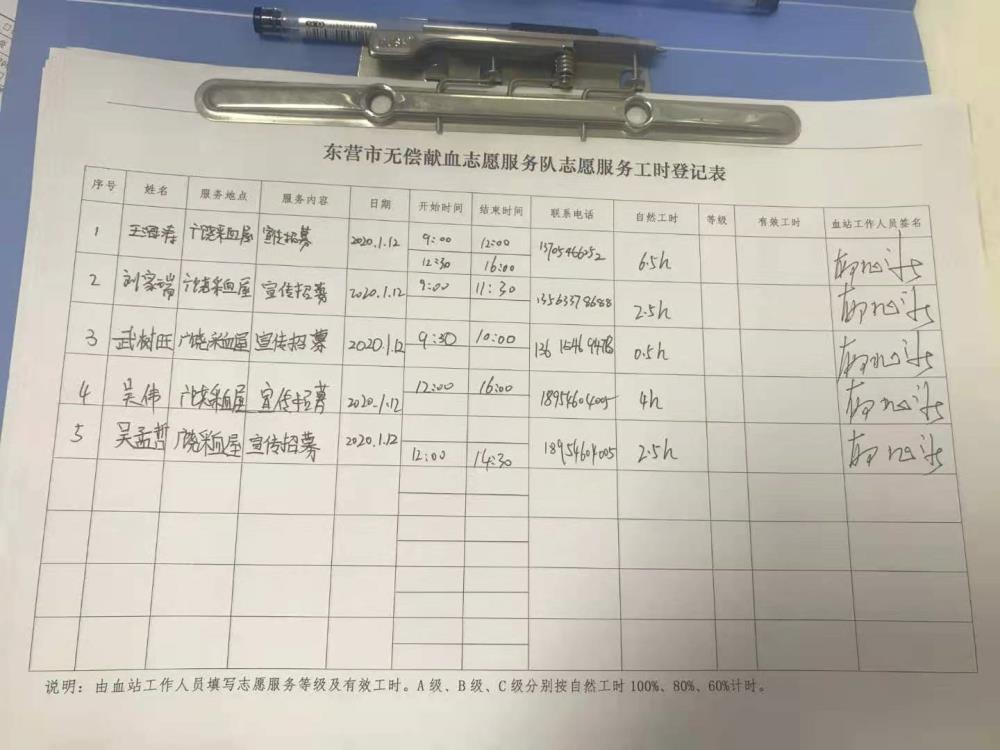 东营市无偿献血志愿服务队志愿服务工时登记表
序号 姓名 服务地点 服务内容 日期 开始时间 结束时间 联系电话 自然工时 等级 有效工时 血站工作人员签名
1 王海涛 广饶采血屋 宣传招募 2020.1.12 9:00 12:00 13705466052 6.5h
12:30 16:00
2 刘家瑞 广饶采血屋 宣传招募 2020.1.12 9:00 11:30 13563378688 2.5h
3 武树旺 广饶采血屋 宣传招募 2020.1.12 9:30 10:00 136 1546 9478 0.5h
4 吴伟 广饶采血屋 宣传招募 2020.1.12 12:00 16:00 18954604005 4h
5 吴孟哲 广饶采血屋 宣传招募 2020.1.12 12:00 14:30 18954604005 2.5h
说明：由血站工作人员填写志愿服务等级及有效工时。A级、B级、C级分别按自然工时100%、80%、60%计时。